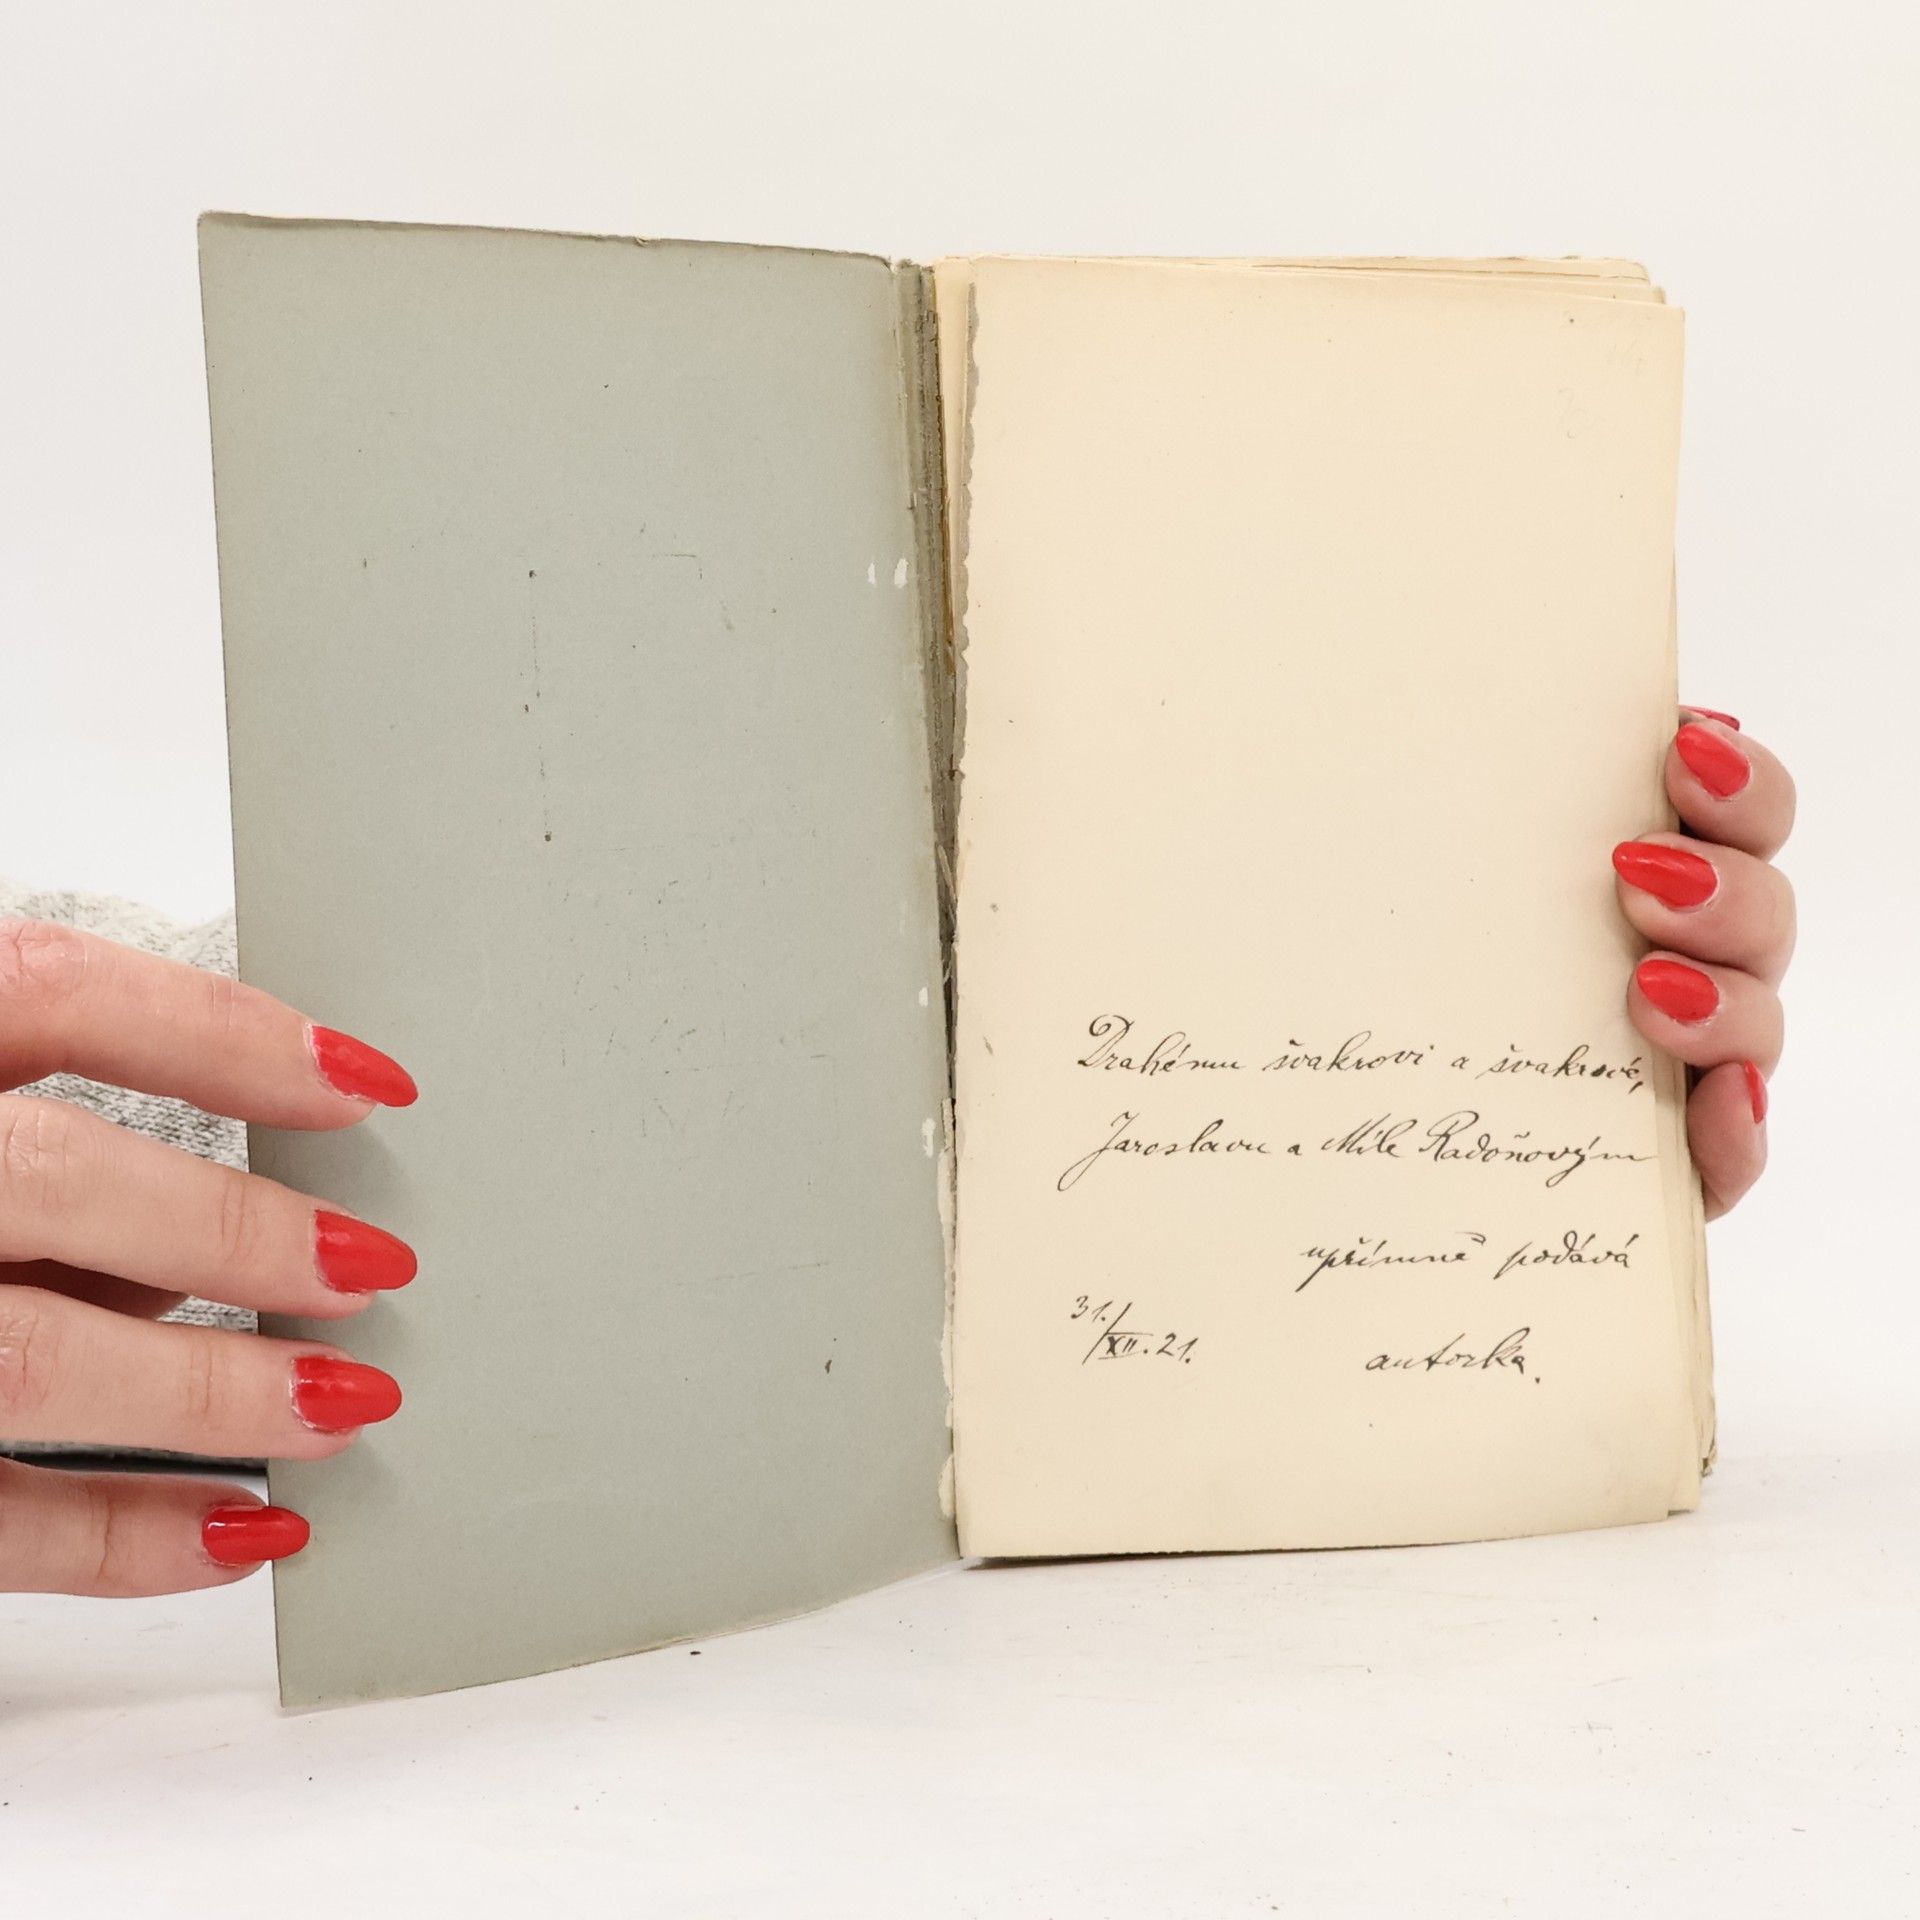 Drahému švakrovi a švakrové,
Jaroslavu a Mile Radoňovým
upřímně podává
31./XII.21.
autorka.